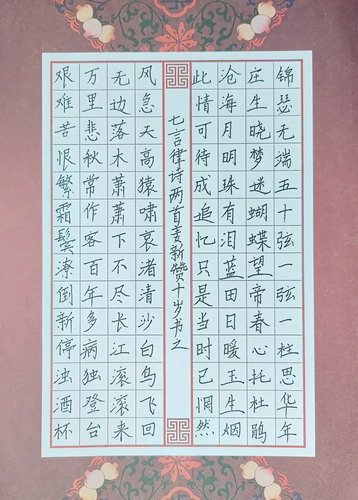 锦瑟无端五十弦一弦一柱思华年
庄生晓梦迷蝴蝶望帝春心托杜鹃
沧海月明珠有泪蓝田日暖玉生烟
此情可待成追忆只是当时已惘然
七言律诗两首姜新赞十岁书之
风急天高猿啸哀渚清沙白鸟飞回
无边落木萧萧下不尽长江滚滚来
万里悲秋常作客百年多病独登台
艰难苦恨繁霜鬓潦倒新停浊酒杯